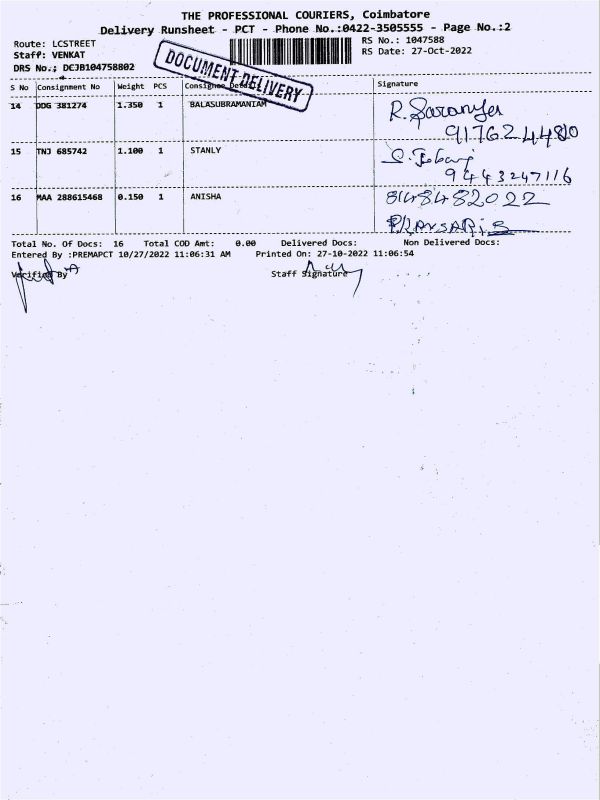 THE PROFESSIONAL COURIERS, Coimbatore
Delivery Runsheet - PCT - Phone No.:0422-3505555 - Page No.:2
Route: LCSTREET
RS No.: 1047588
Staff: VENKAT
RS Date: 27-Oct-2022
DRS No.; DCJB104758802
DOCUMENT DELIVERY
S No Consignment No Weight PCS Consignee Details Signature
14 DDG 381274 1.350 1 BALASUBRAMANIAM R. Saranya
9176244480
15 TNJ 685742 1.100 1 STANLY
9443247116
16 MAA 288615468 0.150 1 ANISHA 8148482022
Total No. Of Docs: 16 Total COD Amt: 0.00 Delivered Docs: Non Delivered Docs:
Entered By :PREMAPCT 10/27/2022 11:06:31 AM Printed On: 27-10-2022 11:06:54
Verified By Staff Signature